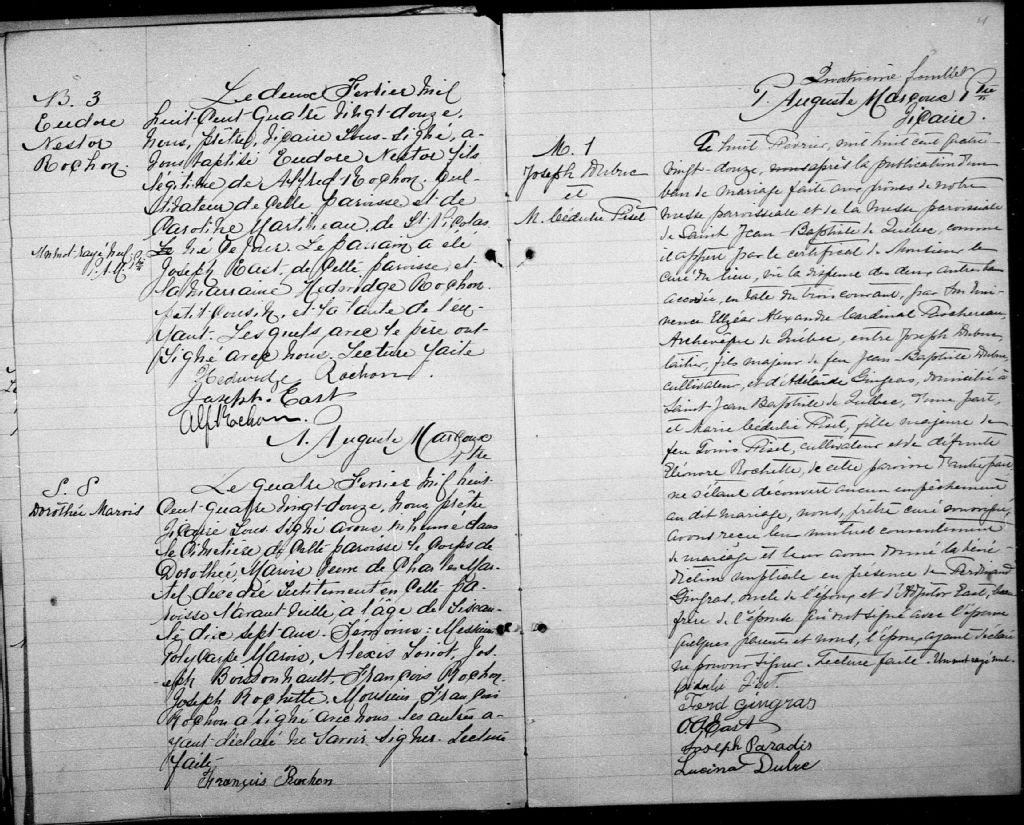 B. 3
Eudore
Nestor
Rochon.
Un mot rayé nul
Le deux Fevrier mil
huit Cent Quatre Vingt douze,
Nous, prêtre, Vicaire Sous-signé, a-
vons baptisé Eudore Nestor fils
légitime de Alfred Rochon, Cul-
tivateur de Cette paroisse et de
Caroline Martineau de St Nicolas
né de ce jour. Le parrain a été
Joseph East, de Cette paroisse, et
la marraine Hedwidge Rochon.
petit Cousin, et la tante de l'en-
fant. Lesquels avec le père ont
Signé avec nous. Lecture faite
Hedwidge Rochon
Joseph East
Alf Rochon
A. Auguste Marcoux
Ptre
S. 8
Dorothée Marois
Le quatre Fevrier mil huit
Cent Quatre Vingt douze, Nous, prêtre
Vicaire Sous signé avons inhumé dans
le Cimetière de Cette paroisse le Corps de
Dorothée Marois Veuve de Charles Mar-
tel décédée Subitement en Cette pa-
roisse l'avant veille, à l'âge de Soixan-
te dix sept ans. Témoins: Messieurs
Polycarpe Marois, Alexis Loriot, Jos-
eph Boissonnault, François Rochon.
Joseph Rochette. Monsieur François
Rochon a signé avec nous les autres a-
yant déclaré ne Savoir Signer. Lecture
faite
François Rochon
4
Quatrieme feuillet
P. Auguste Marcoux Ptre
Vicaire.
M. 1
Joseph Dubuc
et
M. Cédulie Piset
Le huit Février, mil huit cent quatre-
vingt-douze, après la publication d'un
ban de mariage faite aux prônes de notre
messe paroissiale et de la messe paroissiale
de Saint Jean-Baptiste de Québec, comme
il appert par le certificat de Monsieur le
curé du lieu, vu la dispense des deux autres bans
accordée, en date du trois courant, par Son Emi-
nence Elzéar Alexandre Cardinal Taschereau,
Archevêque de Québec, entre Joseph Dubuc,
laitier, fils majeur de feu Jean-Baptiste Dubuc,
cultivateur, et d'Adélaïde Gingras, domicilié à
Saint-Jean Baptiste de Québec, d'une part,
et Marie Cédulie Piset, fille majeure de
feu Louis Piset, cultivateur et de défunte
Eléonore Rochette, de cette paroisse d'autre part;
ne s'étant découvert aucun empêchement
au dit mariage, nous, prêtre curé soussigné,
avons reçu leur mutuel consentement
de mariage et leur avons donné la béné-
diction nuptiale en présence de Ferdinand
Gingras, oncle de l'époux et d'Adjutor East,
frère de l'épouse qui ont signé avec l'épouse
quelques parents et nous, l'époux ayant déclaré
ne pouvoir signer. Lecture faite. Un mot rayé nul.
Cedulie Piset
Ferd Gingras
East
Joseph Paradis
Lucina Dubuc